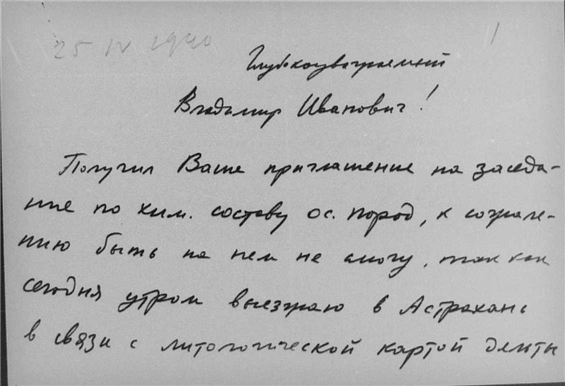 25 IV 1940
1
Глубокоуважаемый
Владимир Иванович!
Получил Ваше приглашение на заседа-
ние по хим. составу ос. пород, к сожале-
нию быть на нем не смогу, так как
сегодня утром выезжаю в Астрахань
в связи с литологической картой дельты